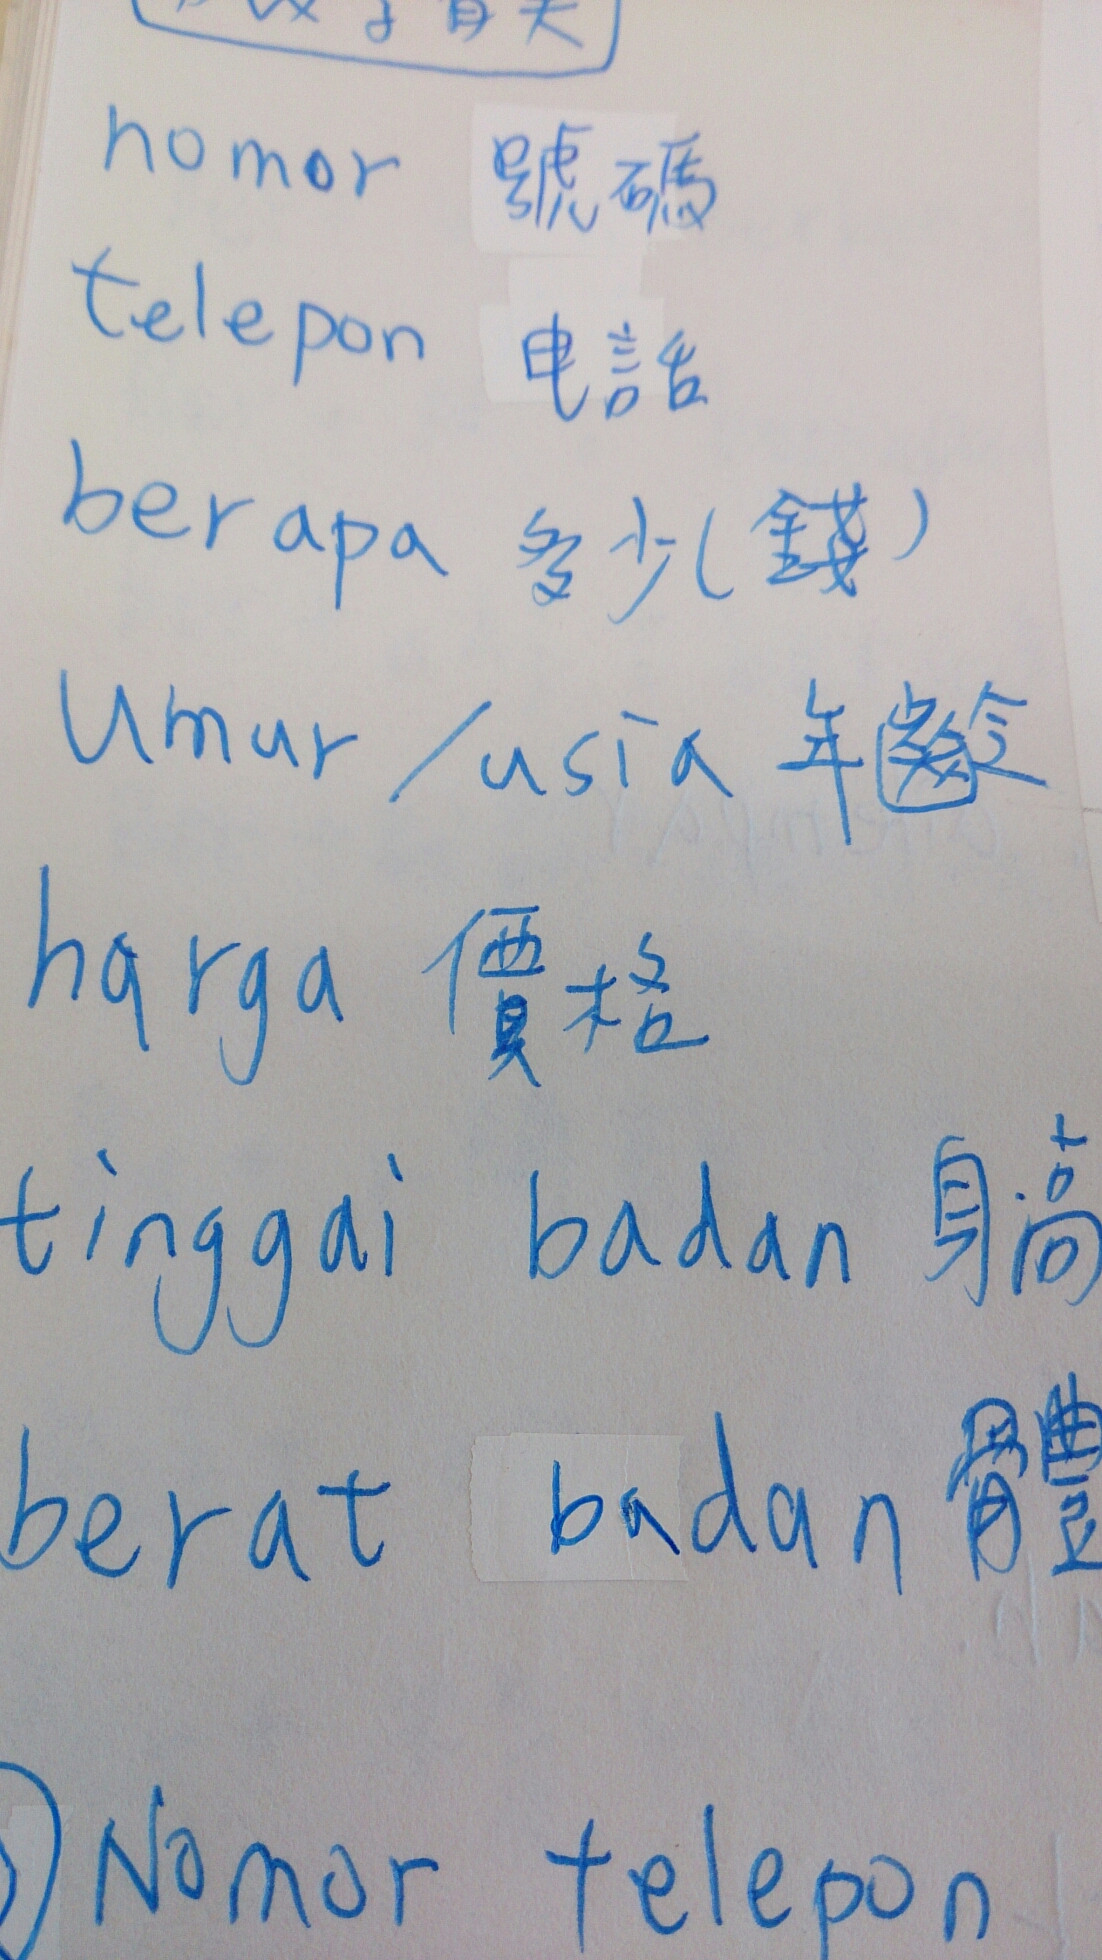 nomor 號碼
telepon 电話
berapa 多少(錢)
Umur/usia 年齡
harga 價格
tinggai badan 身高
berat badan 體
Nomor telepon